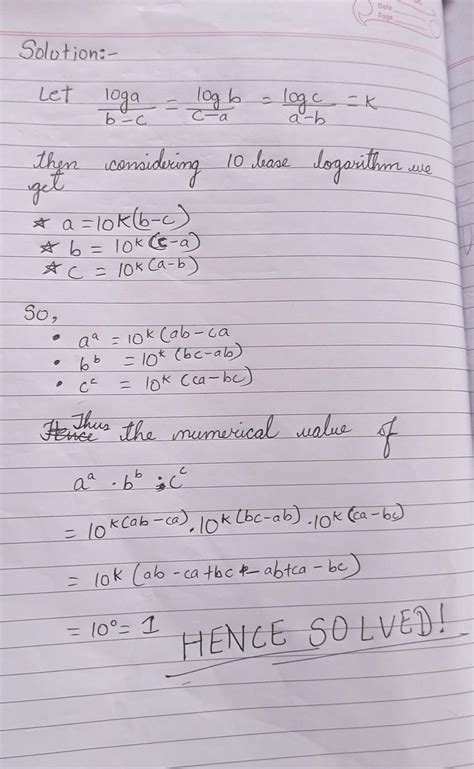 Date
Page
Solution:-
Let loga/b-c = log b/c-a = log c/a-b = K
then considering 10 base logarithm we
get
☆ a = 10K(b-c)
☆ b = 10ᴷ(c-a)
☆ c = 10ᴷ(a-b)
So,
• aᵃ = 10ᴷ(ab-ca
• bᵇ = 10ᴷ(bc-ab)
• cᶜ = 10ᴷ(ca-bc)
Thus the numerical value of
aᵃ · bᵇ · cᶜ
= 10ᴷ⁽ᵃᵇ⁻ᶜᵃ⁾ · 10ᴷ(bc-ab) · 10ᴷ(ca-bc)
= 10ᴷ (ab-ca+bc-ab+ca-bc)
= 10⁰ = 1
HENCE SOLVED!